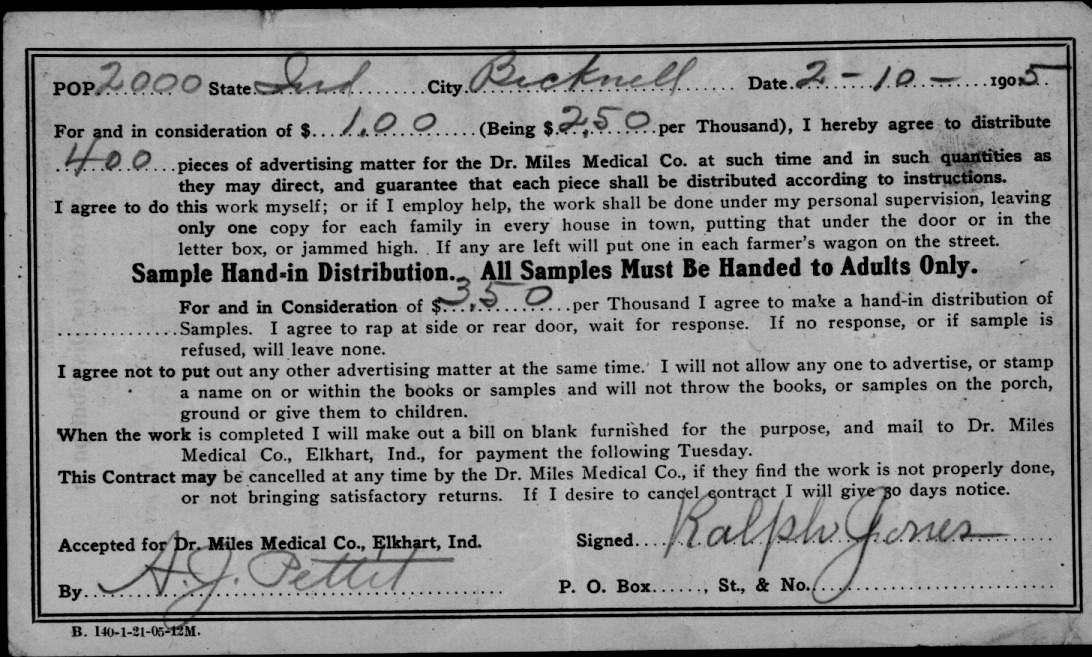 POP. 2000 State Ind City. Bicknell Date. 2-10- 1905
For and in consideration of $ 1.00 (Being $ 2.50 per Thousand), I hereby agree to distribute
400 pieces of advertising matter for the Dr. Miles Medical Co. at such time and in such quantities as
they may direct, and guarantee that each piece shall be distributed according to instructions.
I agree to do this work myself; or if I employ help, the work shall be done under my personal supervision, leaving
only one copy for each family in every house in town, putting that under the door or in the
letter box, or jammed high. If any are left will put one in each farmer's wagon on the street.
Sample Hand-in Distribution. All Samples Must Be Handed to Adults Only.
For and in Consideration of $ 3.50 per Thousand I agree to make a hand-in distribution of
Samples. I agree to rap at side or rear door, wait for response. If no response, or if sample is
refused, will leave none.
I agree not to put out any other advertising matter at the same time. I will not allow any one to advertise, or stamp
a name on or within the books or samples and will not throw the books, or samples on the porch,
ground or give them to children.
When the work is completed I will make out a bill on blank furnished for the purpose, and mail to Dr. Miles
Medical Co., Elkhart, Ind., for payment the following Tuesday.
This Contract may be cancelled at any time by the Dr. Miles Medical Co., if they find the work is not properly done,
or not bringing satisfactory returns. If I desire to cancel contract I will give 30 days notice.
Accepted for Dr. Miles Medical Co., Elkhart, Ind. Signed Ralph Jones
By A. J. Pettit P. O. Box......, St., & No.
B. 140-1-21-05-12M.